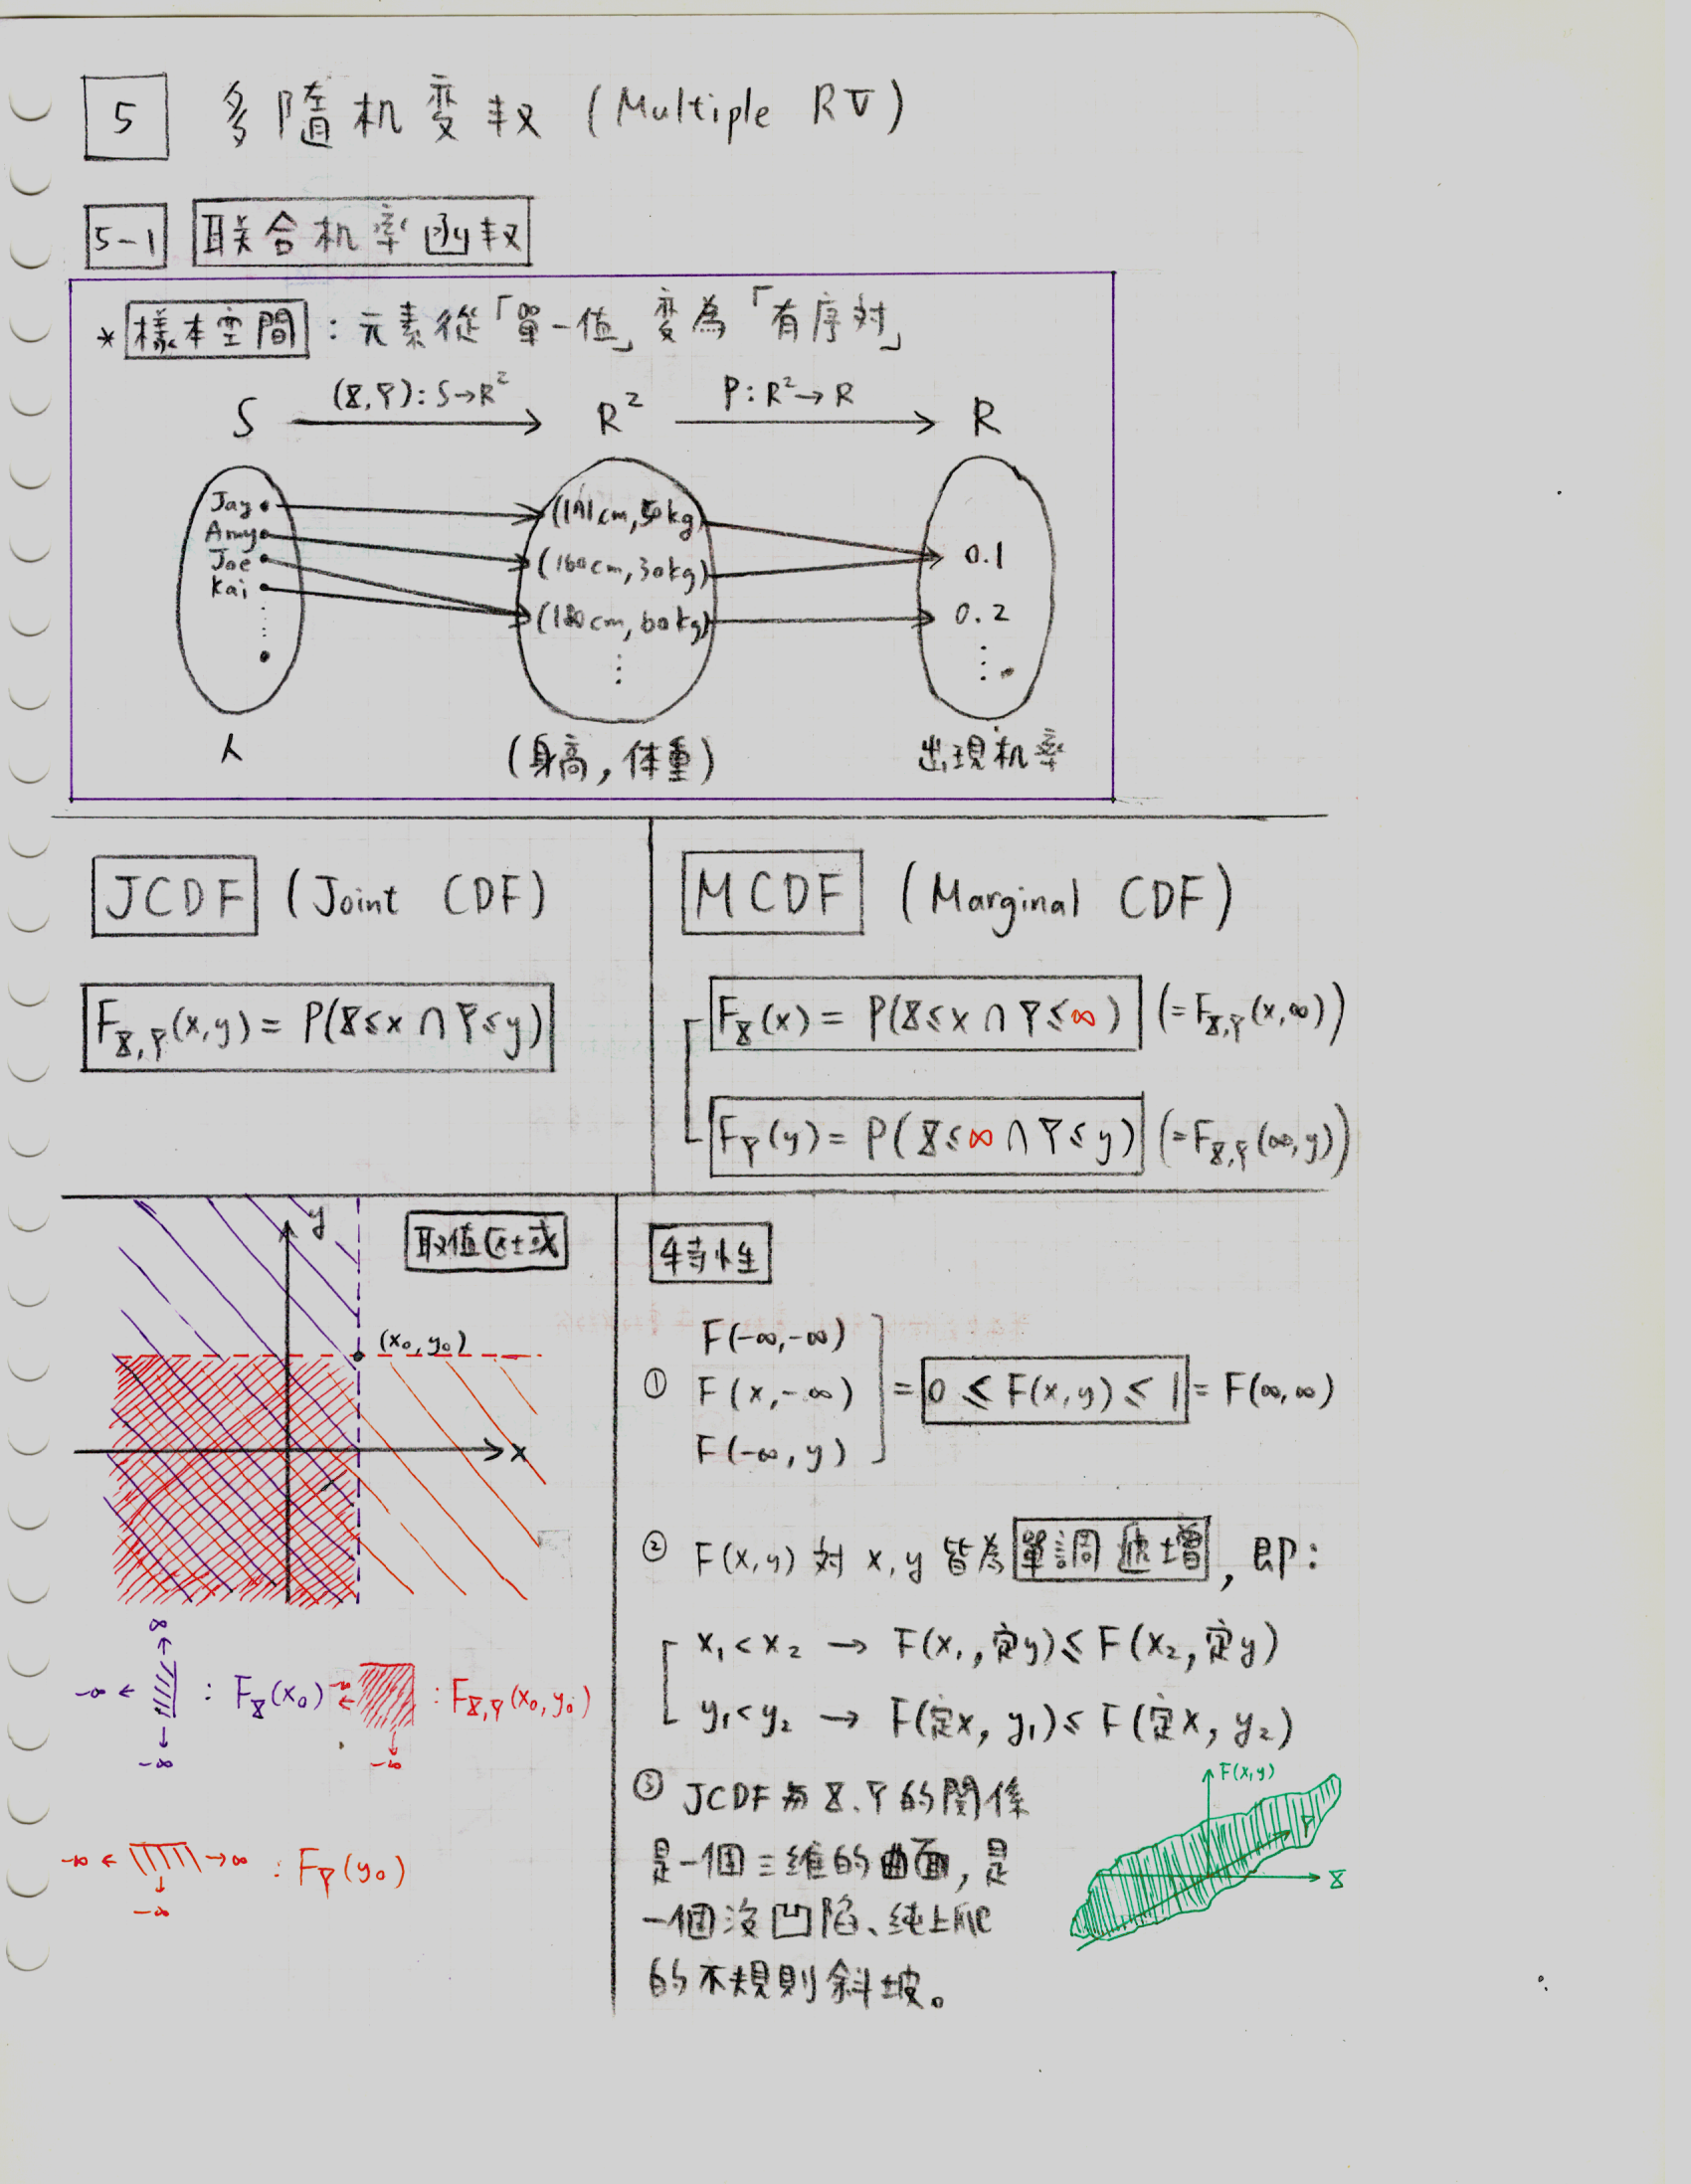 5 多隨机変数 (Multiple RV)
5-1 联合机率函数
* 樣本空間 : 元素從「單一值」変為「有序対」
S (X,Y): S→R² R² P: R²→R R
Jay (191cm, 50kg) 0.1
Amy (160cm, 30kg)
Joe (180cm, 60kg) 0.2
Kai
人 (身高, 体重) 出現机率
JCDF (Joint CDF)
F_X,Y(x,y) = P(X≤x ∩ Y≤y)
MCDF (Marginal CDF)
F_X(x) = P(X≤x ∩ Y≤∞) (=F_X,Y(x,∞))
F_Y(y) = P(X≤∞ ∩ Y≤y) (=F_X,Y(∞,y))
取值区域
y
(x₀, y₀)
x
∞
-∞ ← : F_X(x₀)
-∞
-∞ ← : F_X,Y(x₀, y₀)
-∞
-∞ ← → ∞ : F_Y(y₀)
-∞
特性
① F(-∞,-∞)
F(x,-∞) = 0 ≤ F(x,y) ≤ 1 = F(∞,∞)
F(-∞,y)
② F(x,y) 対 x,y 皆為 單調遞增, 即:
x₁<x₂ → F(x₁,定y) ≤ F(x₂,定y)
y₁<y₂ → F(定x, y₁) ≤ F(定x, y₂)
③ JCDF 與 X.Y 的関係
是一個三維的曲面, 是
一個沒凹陷、純上爬
的不規則斜坡。
F(x,y)
Y
X